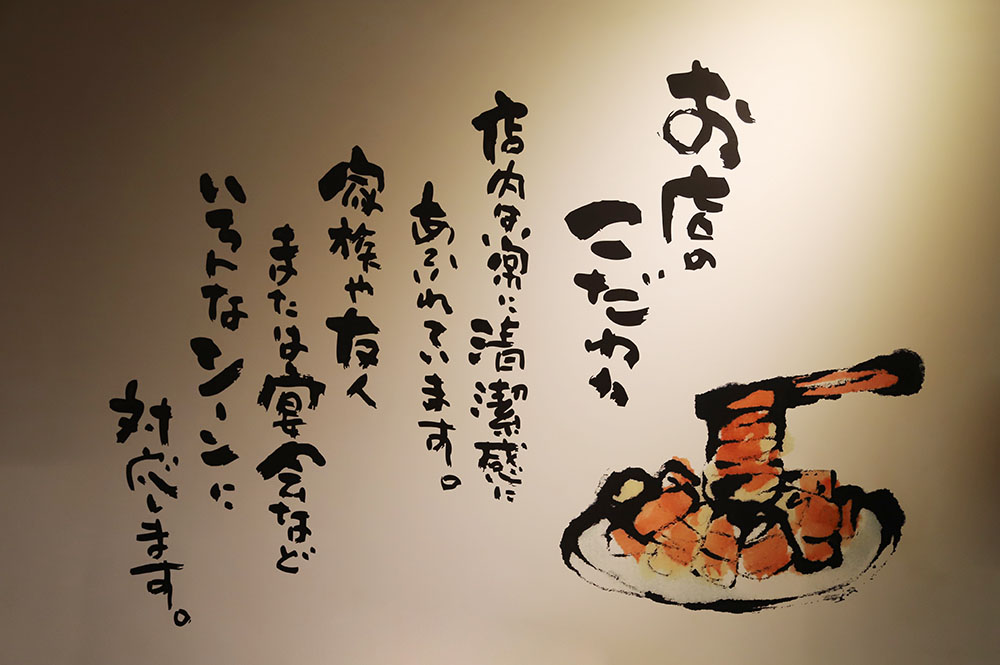 お店の
こだわり
店内は常に清潔感に
あふれています。
家族や友人
または宴会など
いろんなシーンに
対応します。